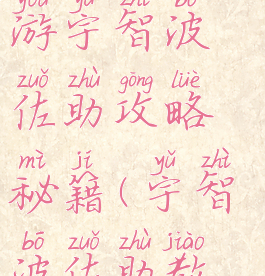 yóu yǔ zhì bō
游宇智波
zuǒ zhù gōng lüè
佐助攻略
mì jí yǔ zhì
秘籍(宇智
bō zuǒ zhù jiào
波佐助教